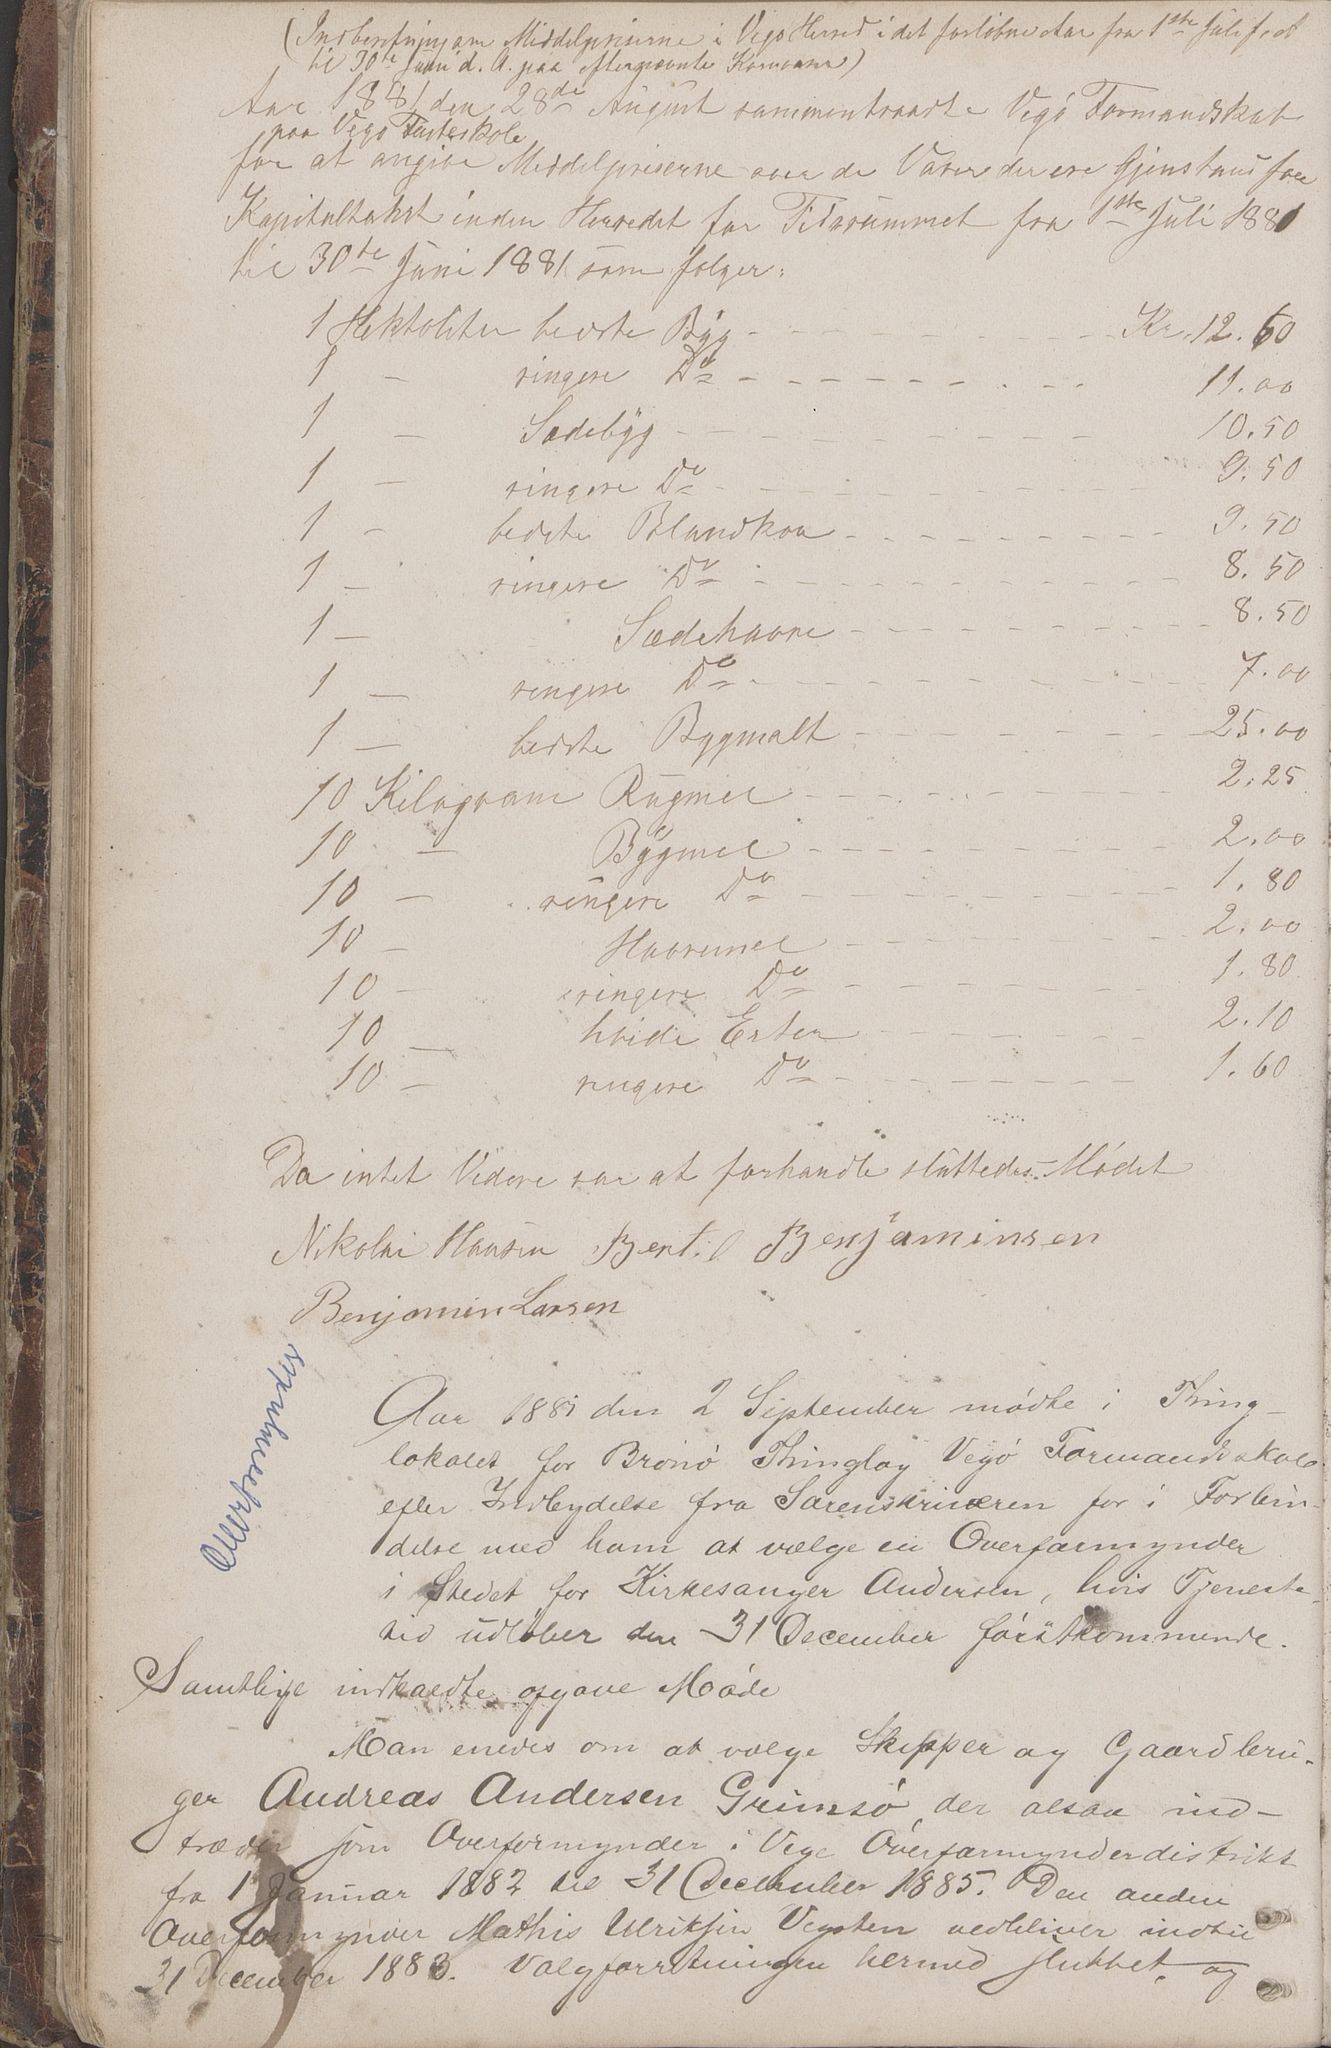 (Indberetning om Middelpriserne i Vegø Herred i det forløbne Aar fra 1ste Juli f. A.
til 30te Juni d. A. paa efternævnte Kornvarer)
Aar 1881 den 28de August sammentraadte Vegø Formandskab
paa Vegø Fasteskole
for at angive Middelpriserne over de Varer der ere Gjenstand for
Kapitultakst inden Herredet for Tidsrummet fra 1ste Juli 1880
til 30te Juni 1881 som følger:
1 Hektoliter bedste Byg - - - Kr. 12.60
1 — ringere Do - - - 11.00
1 — Sædebyg - - - 10.50
1 — ringere Do - - - 9.50
1 — bedste Blandkorn - - - 9.50
1 — ringere Do - - - 8.50
1 — Sædehavre - - - 8.50
1 — ringere Do - - - 7.00
1 — bedste Bygmalt - - - 25.00
10 Kilogram Rugmel - - - 2.25
10 — Bygmel - - - 2.00
10 — ringere Do - - - 1.80
10 — Havremel - - - 2.00
10 — ringere Do - - - 1.80
10 — hvide Erter - - - 2.10
10 — ringere Do - - - 1.60
Da intet Videre var at forhandle sluttedes Mødet
Nikolai Hansen Bent. Benjaminsen
Benjamin Larsen
Overformynder
Aar 1881 den 2 September mødte i Thing-
lokalet for Brønø Thinglag Vegø Formandskab
efter Indbydelse fra Sorenskriveren for i Forbin-
delse med ham at vælge en Overformynder
i Stedet for Kirkesanger Andersen, hvis Tjeneste-
tid udløber den 31 December førstkommende.
Samtlige indkaldte afgave Møde
Man enedes om at vælge Skipper og Gaardbru-
ger Andreas Andersen Grimsø, der altsaa ind-
træder som Overformynder i Vegø Overformynderdistrikt
fra 1 Januar 1882 til 31 December 1885. Den anden
Overformynder Mathis Ulriksen Vegsten vedbliver indtil
31 December 1883. Valgforretningen hermed sluttet og